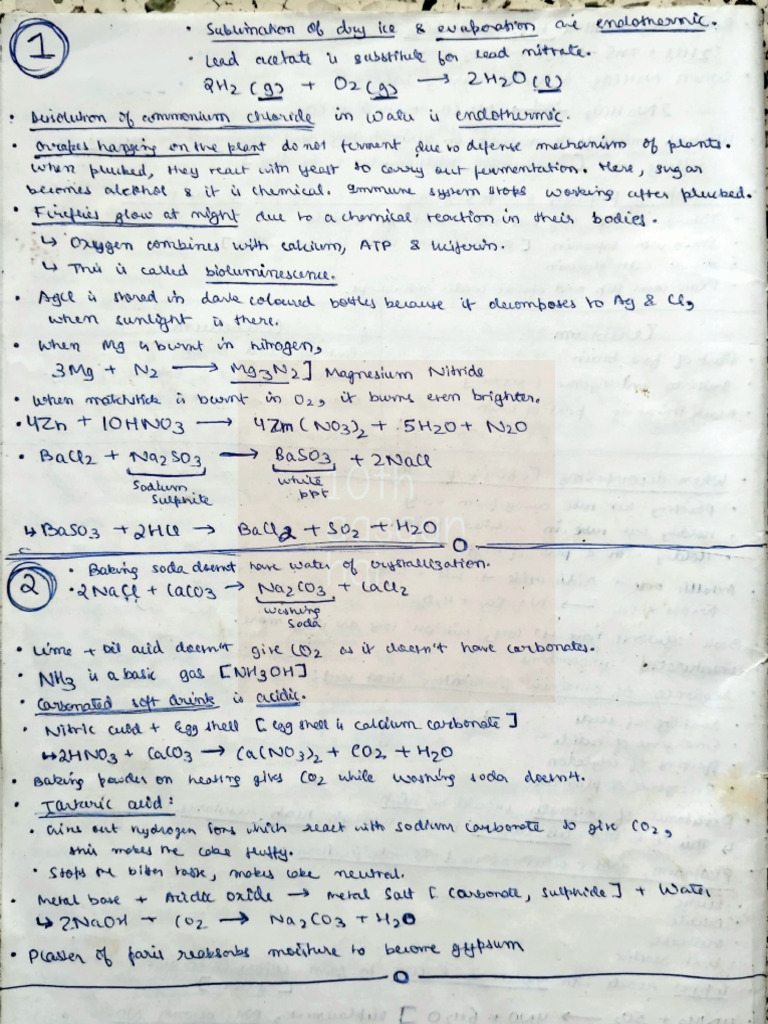 1
• Sublimation of dry ice & evaporation are endothermic.
• Lead acetate is substitute for lead nitrate.
2H2 (g) + O2 (g) → 2H2O (l)
• Dissolution of ammonium chloride in water is endothermic.
• Grapes hanging on the plant do not ferment due to defense mechanism of plants.
When plucked, they react with yeast to carry out fermentation. Here, sugar
becomes alcohol & it is chemical. Immune system stops working after plucked.
• Fireflies glow at night due to a chemical reaction in their bodies.
↳ Oxygen combines with calcium, ATP & luciferin.
↳ This is called bioluminescence.
• AgCl is stored in dark coloured bottles because it decomposes to Ag & Cl2
when sunlight is there.
• When Mg is burnt in nitrogen,
3Mg + N2 → Mg3N2] Magnesium Nitride
• When matchstick is burnt in O2, it burns even brighter.
• 4Zn + 10HNO3 → 4Zn(NO3)2 + 5H2O + N2O
• BaCl2 + Na2SO3 → BaSO3 + 2NaCl
Sodium Sulphite
white ppt
↳ BaSO3 + 2HCl → BaCl2 + SO2 + H2O
2
• Baking soda doesnt have water of crystallization.
• 2NaCl + CaCO3 → Na2CO3 + CaCl2
Washing
Soda
• Lime + Oil acid doesn't give CO2 as it doesn't have carbonates.
• NH3 is a basic gas [NH3OH]
• Carbonated soft drink is acidic.
• Nitric acid + Egg shell [egg shell is calcium carbonate]
↳ 2HNO3 + CaCO3 → Ca(NO3)2 + CO2 + H2O
• Baking powder on heating gives CO2 while washing soda doesn't.
• Tartaric acid:
• Gives out hydrogen ions which react with sodium carbonate to give CO2,
this makes the cake fluffy.
• Stops the bitter taste, makes cake neutral.
• Metal base + Acidic oxide → Metal Salt [Carbonate, sulphide] + Water
↳ 2NaOH + CO2 → Na2CO3 + H2O
• Plaster of paris reabsorbs moisture to become gypsum
10th